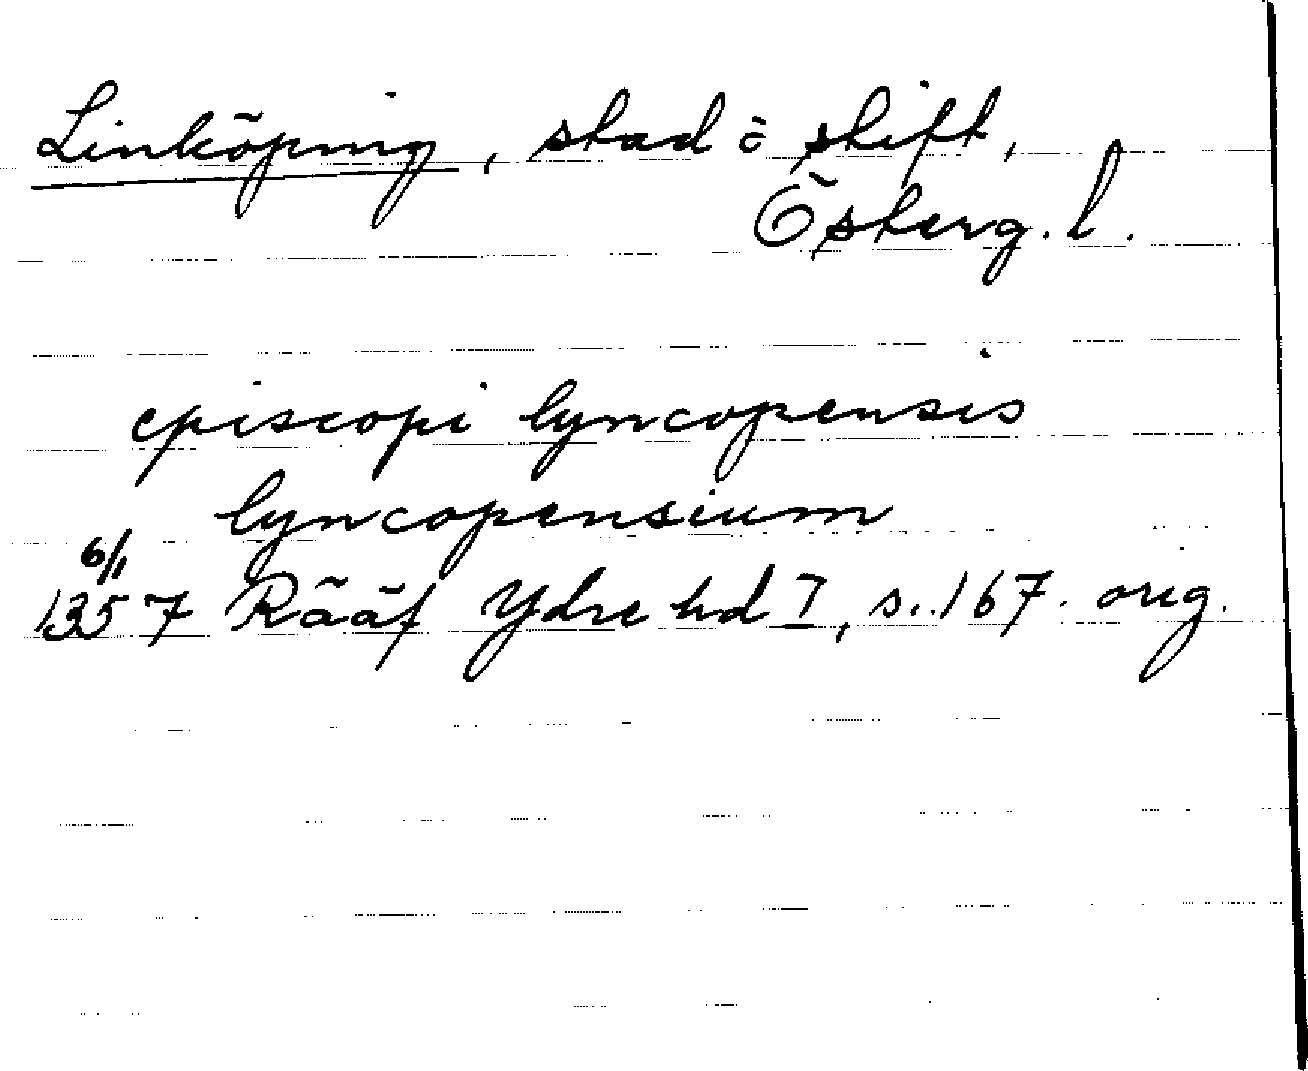 Linköping, stad ö stift,
Österg. l.
episcopi lyncopensis
lyncopensium
6/1
1357 Rääf Ydre hd I, s. 167. orig.